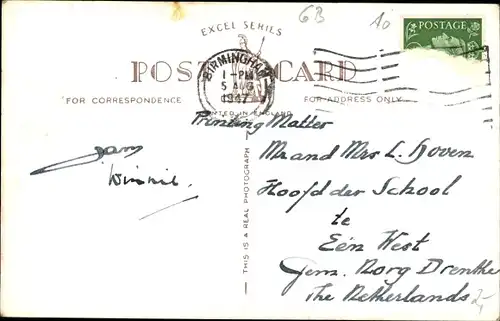 EXCEL SERIES
6B
A0
POSTAGE
POST CARD
BIRMINGHAM
1 - PM
5 AUG
1947
FOR CORRESPONDENCE
FOR ADDRESS ONLY
PRINTED IN ENGLAND
Printing Matter
Mr and Mrs L. Hoven
Hoofd der School
te
Eén West
Gem. Norg Drenthe
The Netherlands
2,-
THIS IS A REAL PHOTOGRAPH